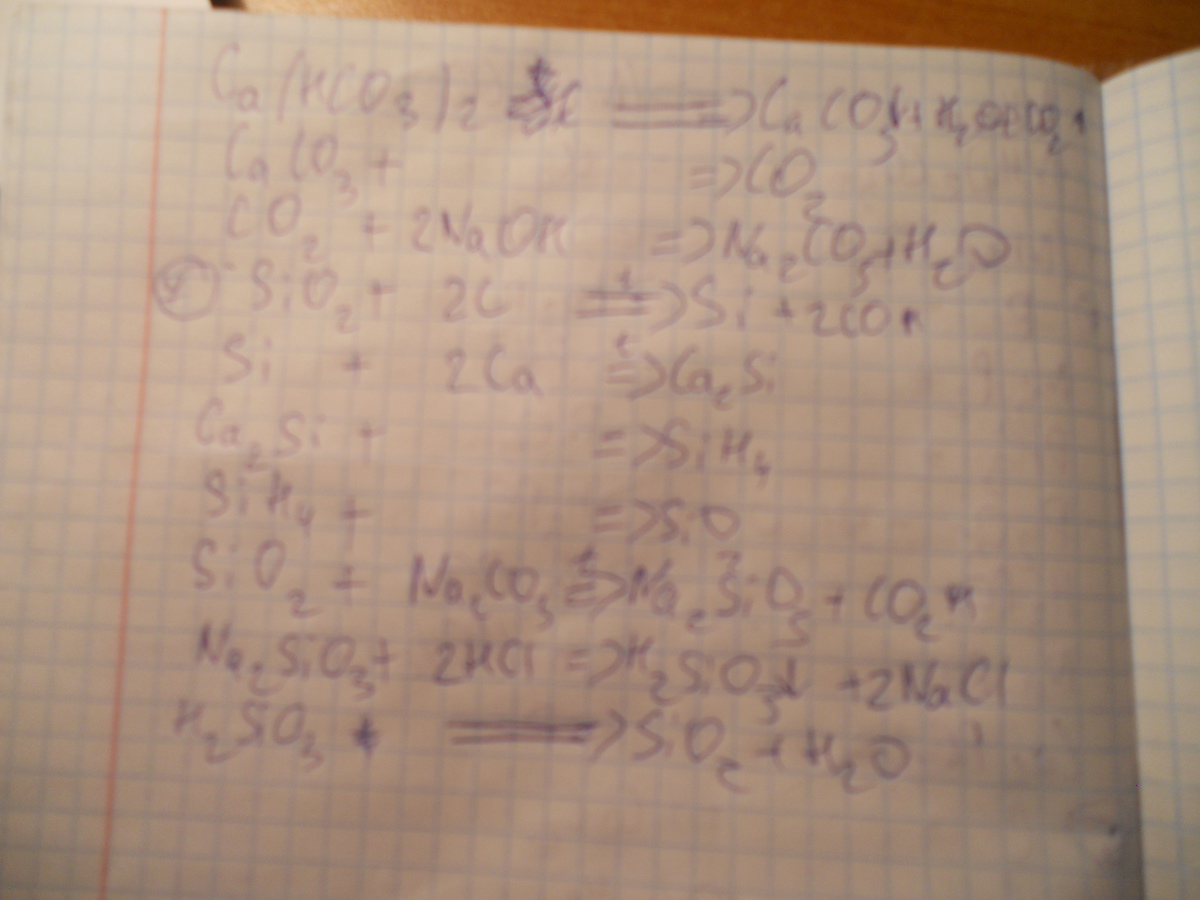 Ca(HCO₃)₂ => CaCO₃↓+H₂O+CO₂↑
CaCO₃ + => CO₂
CO₂ + 2NaOH => Na₂CO₃+H₂O
SiO₂ + 2C =t=> Si + 2CO↑
Si + 2Ca =t=> Ca₂Si
Ca₂Si + => SiH₄
SiH₄ + => SiO₂
SiO₂ + Na₂CO₃ =t=> Na₂SiO₃ + CO₂↑
Na₂SiO₃ + 2HCl => H₂SiO₃↓ + 2NaCl
H₂SiO₃ => SiO₂ + H₂O